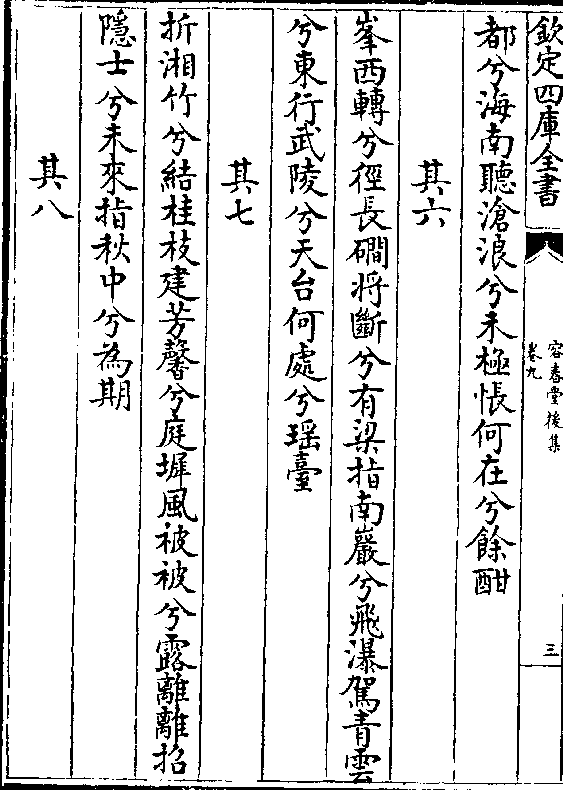 欽定四庫全書
容春堂後集
卷九
三
都兮海南聽滄浪兮未極悵何在兮餘酣
其六
峯西轉兮徑長磵將斷兮有梁指南巖兮飛瀑駕青雲
兮東行武陵兮天台何處兮瑶臺
其七
折湘竹兮結桂枝建芳馨兮庭墀風被被兮露離離招
隱士兮未來指秋中兮為期
其八